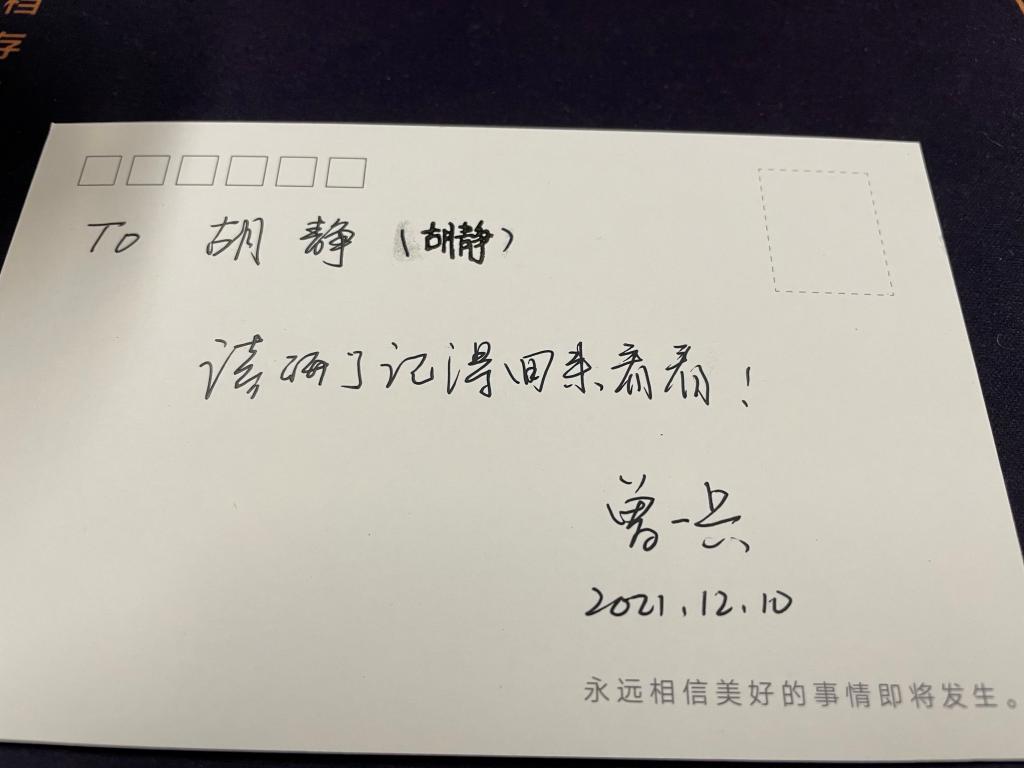 档
存
To 胡静 (胡静)
读研了记得回来看看!
曾一兵
2021.12.10
永远相信美好的事情即将发生。